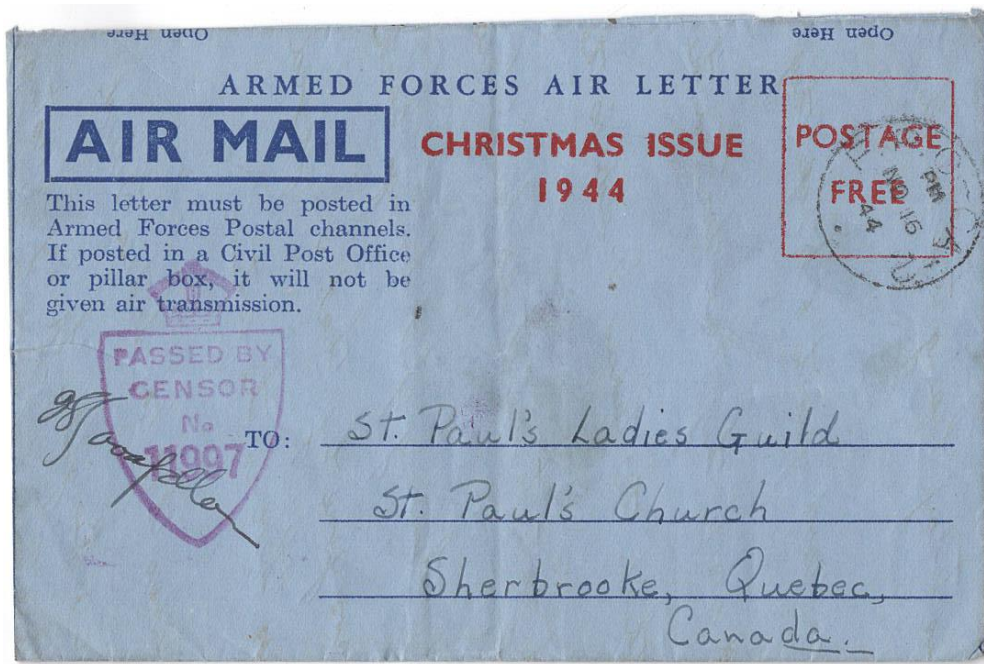 Open Here Open Here
ARMED FORCES AIR LETTER
AIR MAIL
CHRISTMAS ISSUE
1944
POSTAGE
FREE
PM
NO 16
44
This letter must be posted in
Armed Forces Postal channels.
If posted in a Civil Post Office
or pillar box, it will not be
given air transmission.
PASSED BY
CENSOR
No
11997
TO:
St. Paul's Ladies Guild
St. Paul's Church
Sherbrooke, Quebec,
Canada.